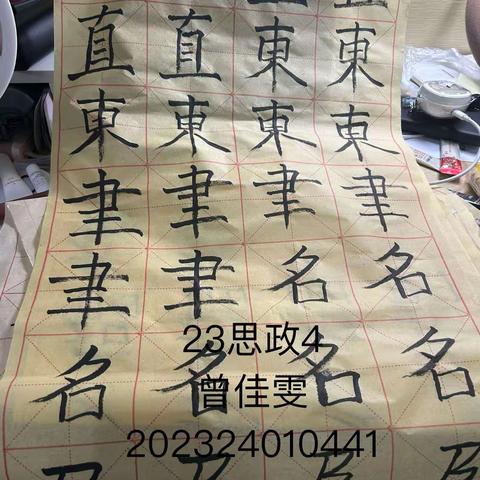 直 直 東 東
東 東 東 東
聿 聿 聿 聿
聿 聿 名 名
名 名 名 名
23思政4
曾佳雯
202324010441